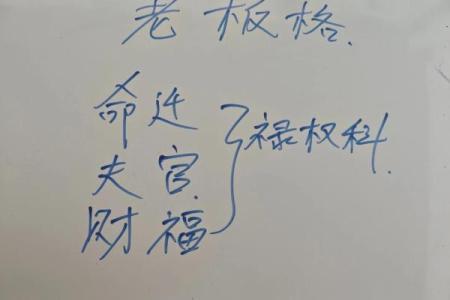 老板格.
命迁
夫官
财福
禄权科.